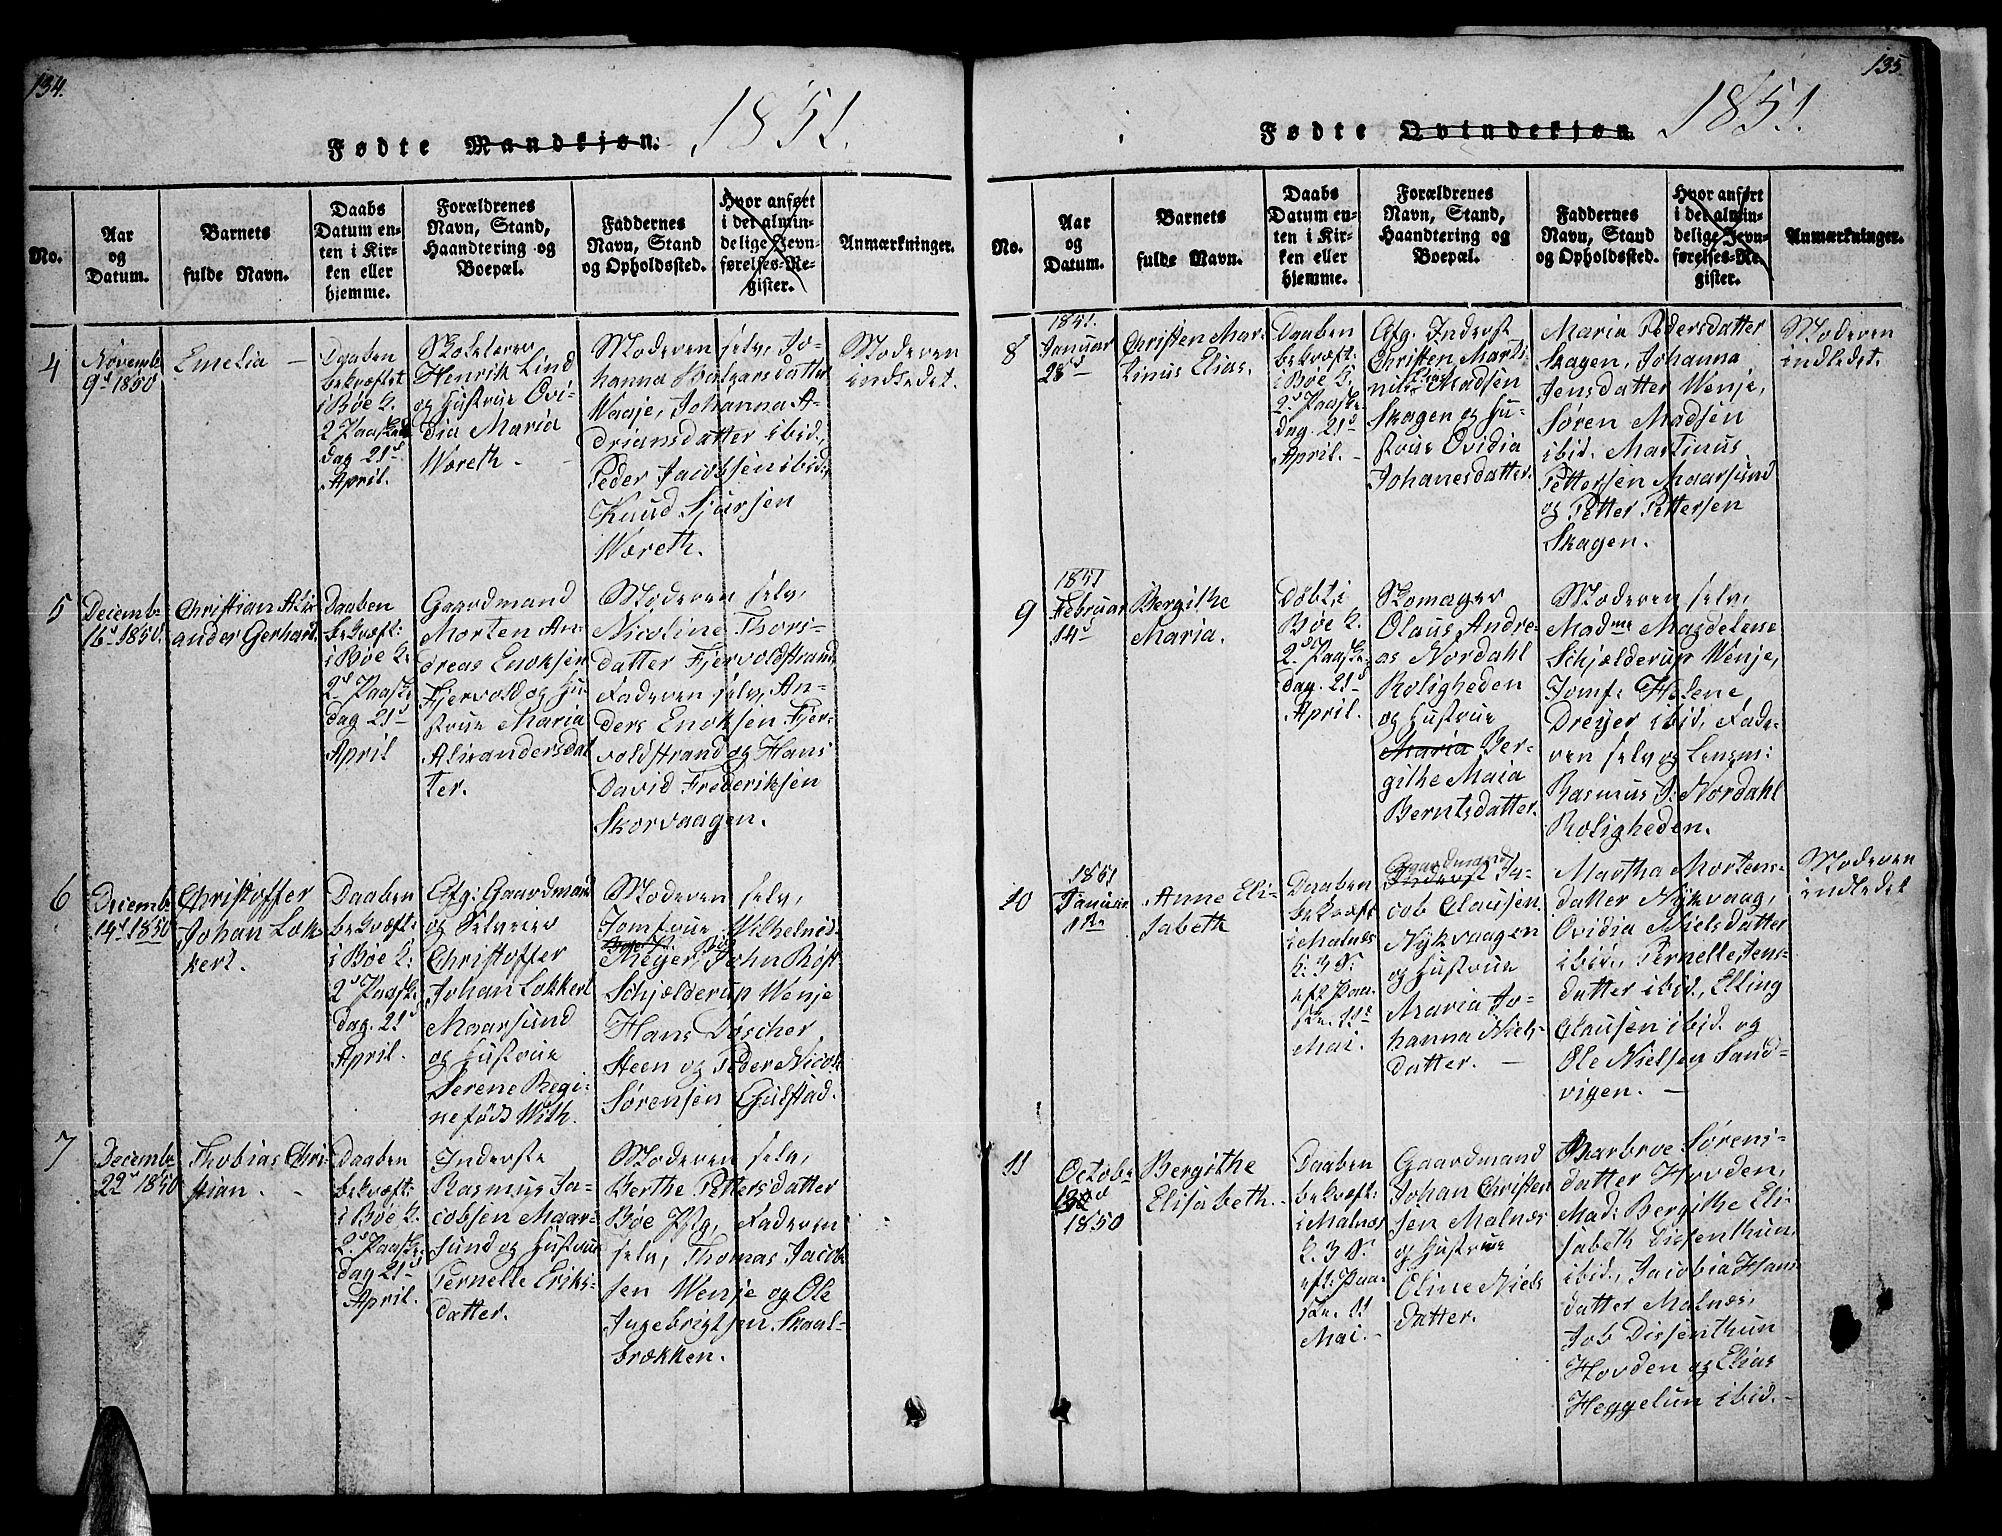 134.
1851.
Fødte Mandkjøn.
No.
Aar
og
Datum.
Barnets
fulde Navn.
Daabs
Datum en-
ten i Kir-
ken eller
hjemme.
Forældrenes
Navn, Stand,
Haandtering og
Boepæl.
Faddernes
Navn, Stand
og Opholdssted.
Hvor anført
i det almin-
delige Jevn-
førelses-Re-
gister.
Anmærkninger.
4
Novembr
9d 1850
Emelia —
Daaben
bekræftet
i Bøe K.
2 Paaske
dag 21d
April.
Skolelærer
Henrik Lind
og Hustrue Ovi-
dia Maria
Woreth. -
Moderen selv, Jo-
hanna
Waaje, Johanna A-
driansdatter ibid.,
Peder Jacobsen ibid.,
Knud Sjursen
Woreth.
Moderen
indledet.
5
Decembr
16d 1850.
Christian Alix-
ander Gerhard.
Daaben
bekræft:
i Bøe K.
2d Paaske
dag 21d
April
Gaardmand
Morten An-
dreas Enoksen
Fjervold og Hu-
strue Maria
Alixandersdat
ter.
Moderen selv,
Nicoline Thors-
datter Fjervoldstrand
Faderen selv, An-
ders Enoksen Fjer-
voldstrand og Hans
David Frederiksen
Skorvaagen.
6
Decembr
14d 1850
Christoffer
Johan Lok-
kert.
Daaben
bekræft:
i Bøe K.
2d Paaske
dag. 21d
April.
Afg: Gaardmand
og Selveier
Christoffer
Johan Lokkert
Maarsund
og Hustrue
Serene Regi-
ne født With.
Moderen selv,
Jomfrue Wilhelmi-
Meyer, John Røst
Schjelderup Wenje
Hans Døscher
Steen og Peder Nicol.
Sørensen Guldstad.
7
Decembr
22d 1850
Thobias Chri-
stian. -
Daaben
bekræft:
i Bøe K.
2d Paaske
dag 21d
April.
Inderste
Rasmus Ja-
cobsen Maar-
sund og Hustrue
Pernelle Eriks-
datter.
Moderen selv,
Berthe Pettersdatter
Bøe Pstg, Faderen
selv, Thomas Jacob
sen Wenje og Ole
Ingebrigtsen Skaal-
brækken.
135.
1851.
Fødte Qvindekjøn.
No.
Aar
og
Datum.
Barnets
fulde Navn.
Daabs
Datum en-
ten i Kir-
ken eller
hjemme.
Forældrenes
Navn, Stand,
Haandtering og
Boepæl.
Faddernes
Navn, Stand
og Opholdssted.
Hvor anført
i det almin-
delige Jevn-
førelses-Re-
gister.
Anmærkninger.
8
1851.
Januar
28d
Christen Mar-
tinus Elias.
Daaben
bekræft.
i Bøe K.
2d Paaske-
dag. 21d
April. -
Afg. Inderst
Christen Marti-
nus Madsen
Skagen og Hu-
strue Ovidia
Johanesdatter.
Maria Pedersdatter
Skagen, Johanna
Jensdatter Wenje,
Søren Madsen
ibid. Martinus
Pettersen Maarsund
og Petter Pettersen
Skagen.
Moderen
indledet.
9
1851
Februar
14d
Bergithe
Maria.
Døbt i
Bøe K.
2d Paaske
dag. 21d
April.
Skomager
Olaus Andre-
as Nordahl
Roligheden
og Hustrue
Maria Ber-
githe Maia
Berntsdatter.
Moderen selv,
Madme Magdelene
Schjelderup Wenje,
Jomf: Helene
Dreyer ibid, Fade-
ren selv og Lensm:
Rasmus J. Nordahl
Roligheden.
10
1851
Januar
1te
Anne Eli-
sabeth
Daaben
bekræft
i Malnes
K. 3 S.
eft Paa-
ske. 11te
Mai.
Gaardmand
Inderst Ja-
cob Clausen
Nykvaagen
og Hustrue
Maria Jo-
hanna Niels-
datter. —
Martha Mortens-
datter Nykvaag,
Ovidia Nielsdatter
ibid, Pernelle Jens-
datter ibid., Elling
Clausen ibid. og
Ole Nielsen Sand-
vigen. —
Moderen
indledet
11
Octobr
1850
Bergithe
Elisabeth. -
Daaben
bekræft:
i Malnes
K. 3 S.
eft: Paa-
ske. 11
Mai. -
Gaardmand
Johan Christen
sen Malnes
og Hustrue
Oline Niels
datter.
Barbroe Sørens-
datter Hovden,
Mad: Bergithe Eli-
sabeth Dissenthun,
ibid., Jacobia Hans
datter Malnes,
Job Dissenthun
Hovden og Elias
Heggelun ibid. -